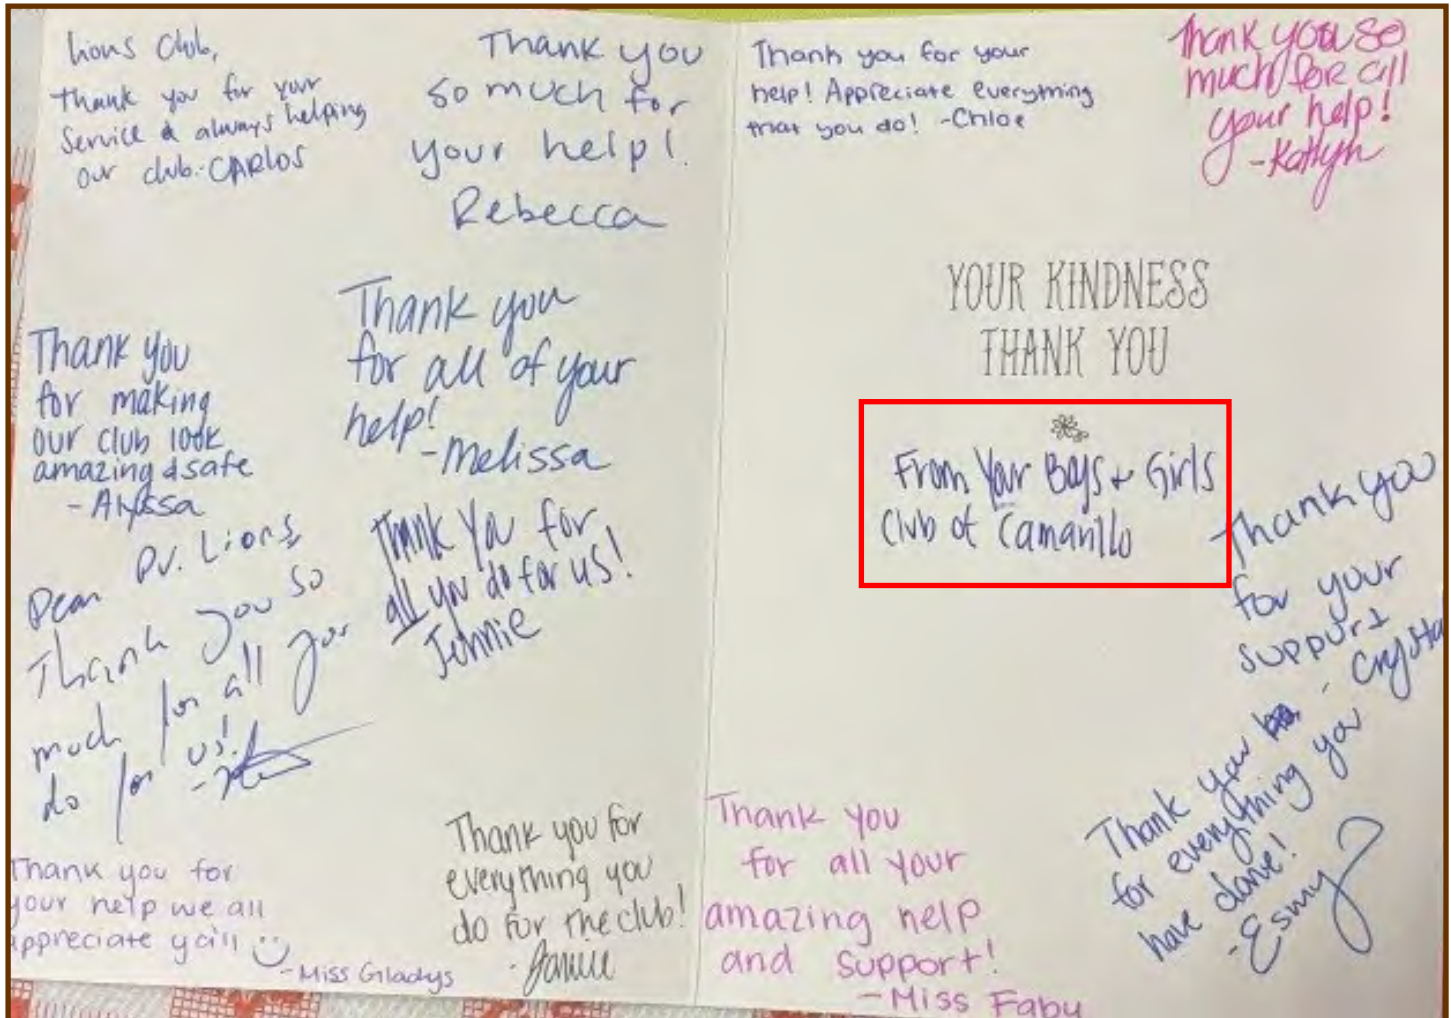 Lions Club,
Thank you for your
Service & always helping
our club.-CARlOS
Thank you
so much for
your help!
Rebecca
Thank you
for making
our club look
amazing & safe
- Alyssa
Thank you
for all of your
help!
-Melissa
Dear P.V. Lions,
Thank you so
much for all you
do for us!
Thank You for
all you do for us!
Jennie
Thank you for
your help we all
appreciate ya'll
-Miss Gladys
Thank you for
everything you
do for the club!
Thank you for your
help! Appreciate everything
that you do! -Chloe
Thank you so
much for all
your help!
-Katlyn
YOUR KINDNESS
THANK YOU
From Your Boys & Girls
Club of Camarillo
Thank you
for your
support
- Crystal
Thank you
for everything you
have done!
-Esmy
Thank you
for all your
amazing help
and support!
-Miss Faby